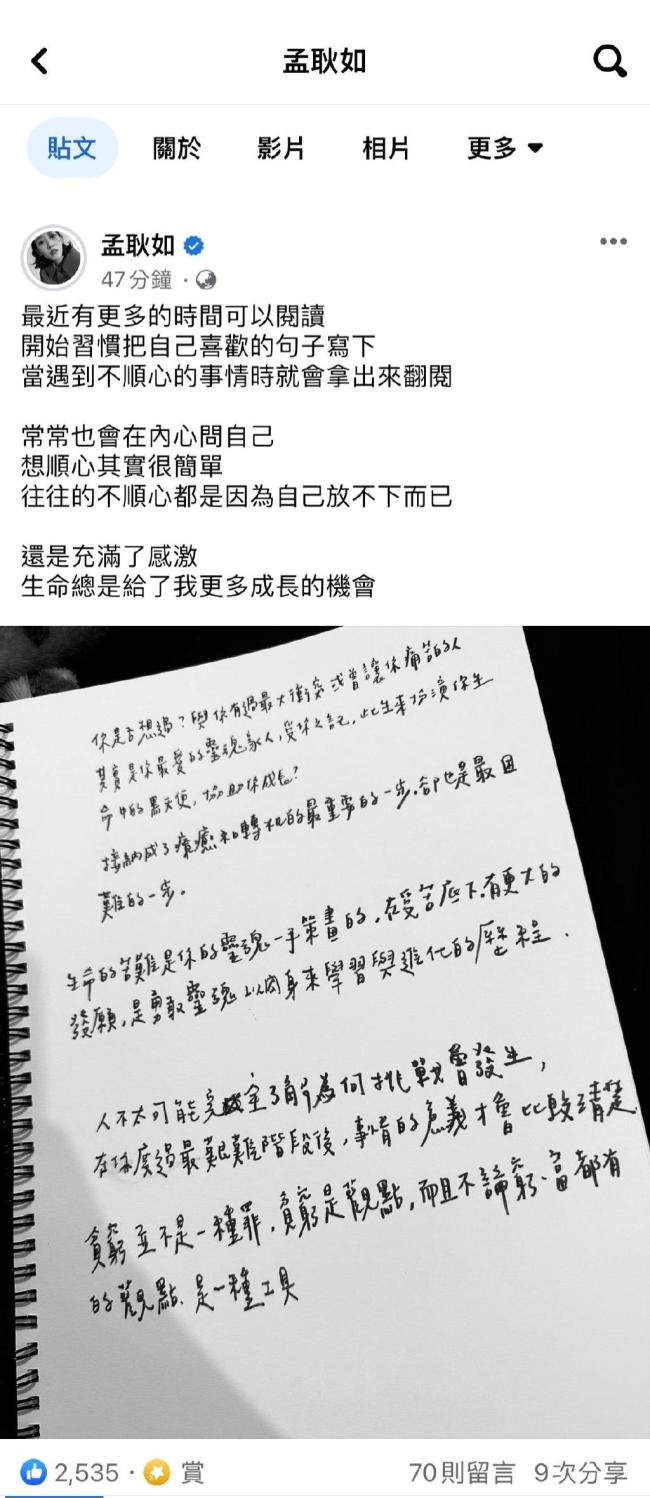 孟耿如
貼文 關於 影片 相片 更多
孟耿如
47分鐘 ·
最近有更多的時間可以閱讀
開始習慣把自己喜歡的句子寫下
當遇到不順心的事情時就會拿出來翻閱
常常也會在內心問自己
想順心其實很簡單
往往的不順心都是因為自己放不下而已
還是充滿了感激
生命總是給了我更多成長的機會
你是否想過?與你有過最大衝突或曾讓你痛苦的人
其實是你最愛的靈魂家人,受你之託,此生來扮演你生
命中的黑天使,協助你成長?
接納成了療癒和轉和的最重要的一步,卻也是最困
難的一步。
生命的苦難是你的靈魂一手策畫的,在受苦底下,有更大的
發願,是勇敢靈魂以肉身來學習與進化的歷程.
人不太可能完全了解為何挑戰會發生,
在你度過最艱難階段後,事情的意義才會比較清楚.
貧窮並不是一種罪,貧窮是觀點,而且不論窮、富都有
的觀點、是一種工具
2,535 · 賞 70則留言 9次分享